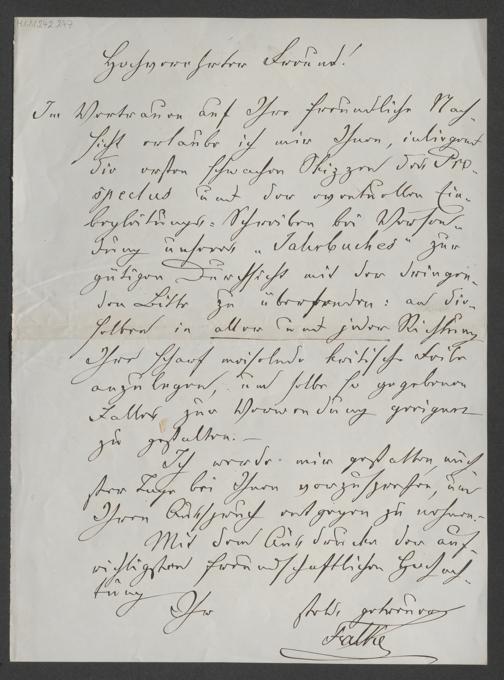 H.I.N. 242.247
Hochverehrter Freund!
Im Vertrauen auf Ihre freundliche Nach-
sicht erlaube ich mir Ihnen, inliegend
die ersten schwachen Skizzen des Pro-
spectus und der eventuellen Ein-
begleitungs-Schreiben bei Versen-
dung unseres „Jahrbuches" zur
gütigen Durchsicht mit der dringen-
den Bitte zu übersenden: an die-
selben in aller und jeder Richtung
Ihre scharf meiselnde kritische Feile
anzulegen, und selbe so gegebenen
Falles zur Verwendung geeignet
zu gestalten. —
Ich werde mir gestatten, näch-
ster Tage bei Ihnen vorzusprechen, um
Ihren Ausspruch entgegen zu nehmen. –
Mit dem Ausdrucke der auf-
richtigsten freundschaftlichen Hochach-
tung
Ihr stets getreuer
Falke